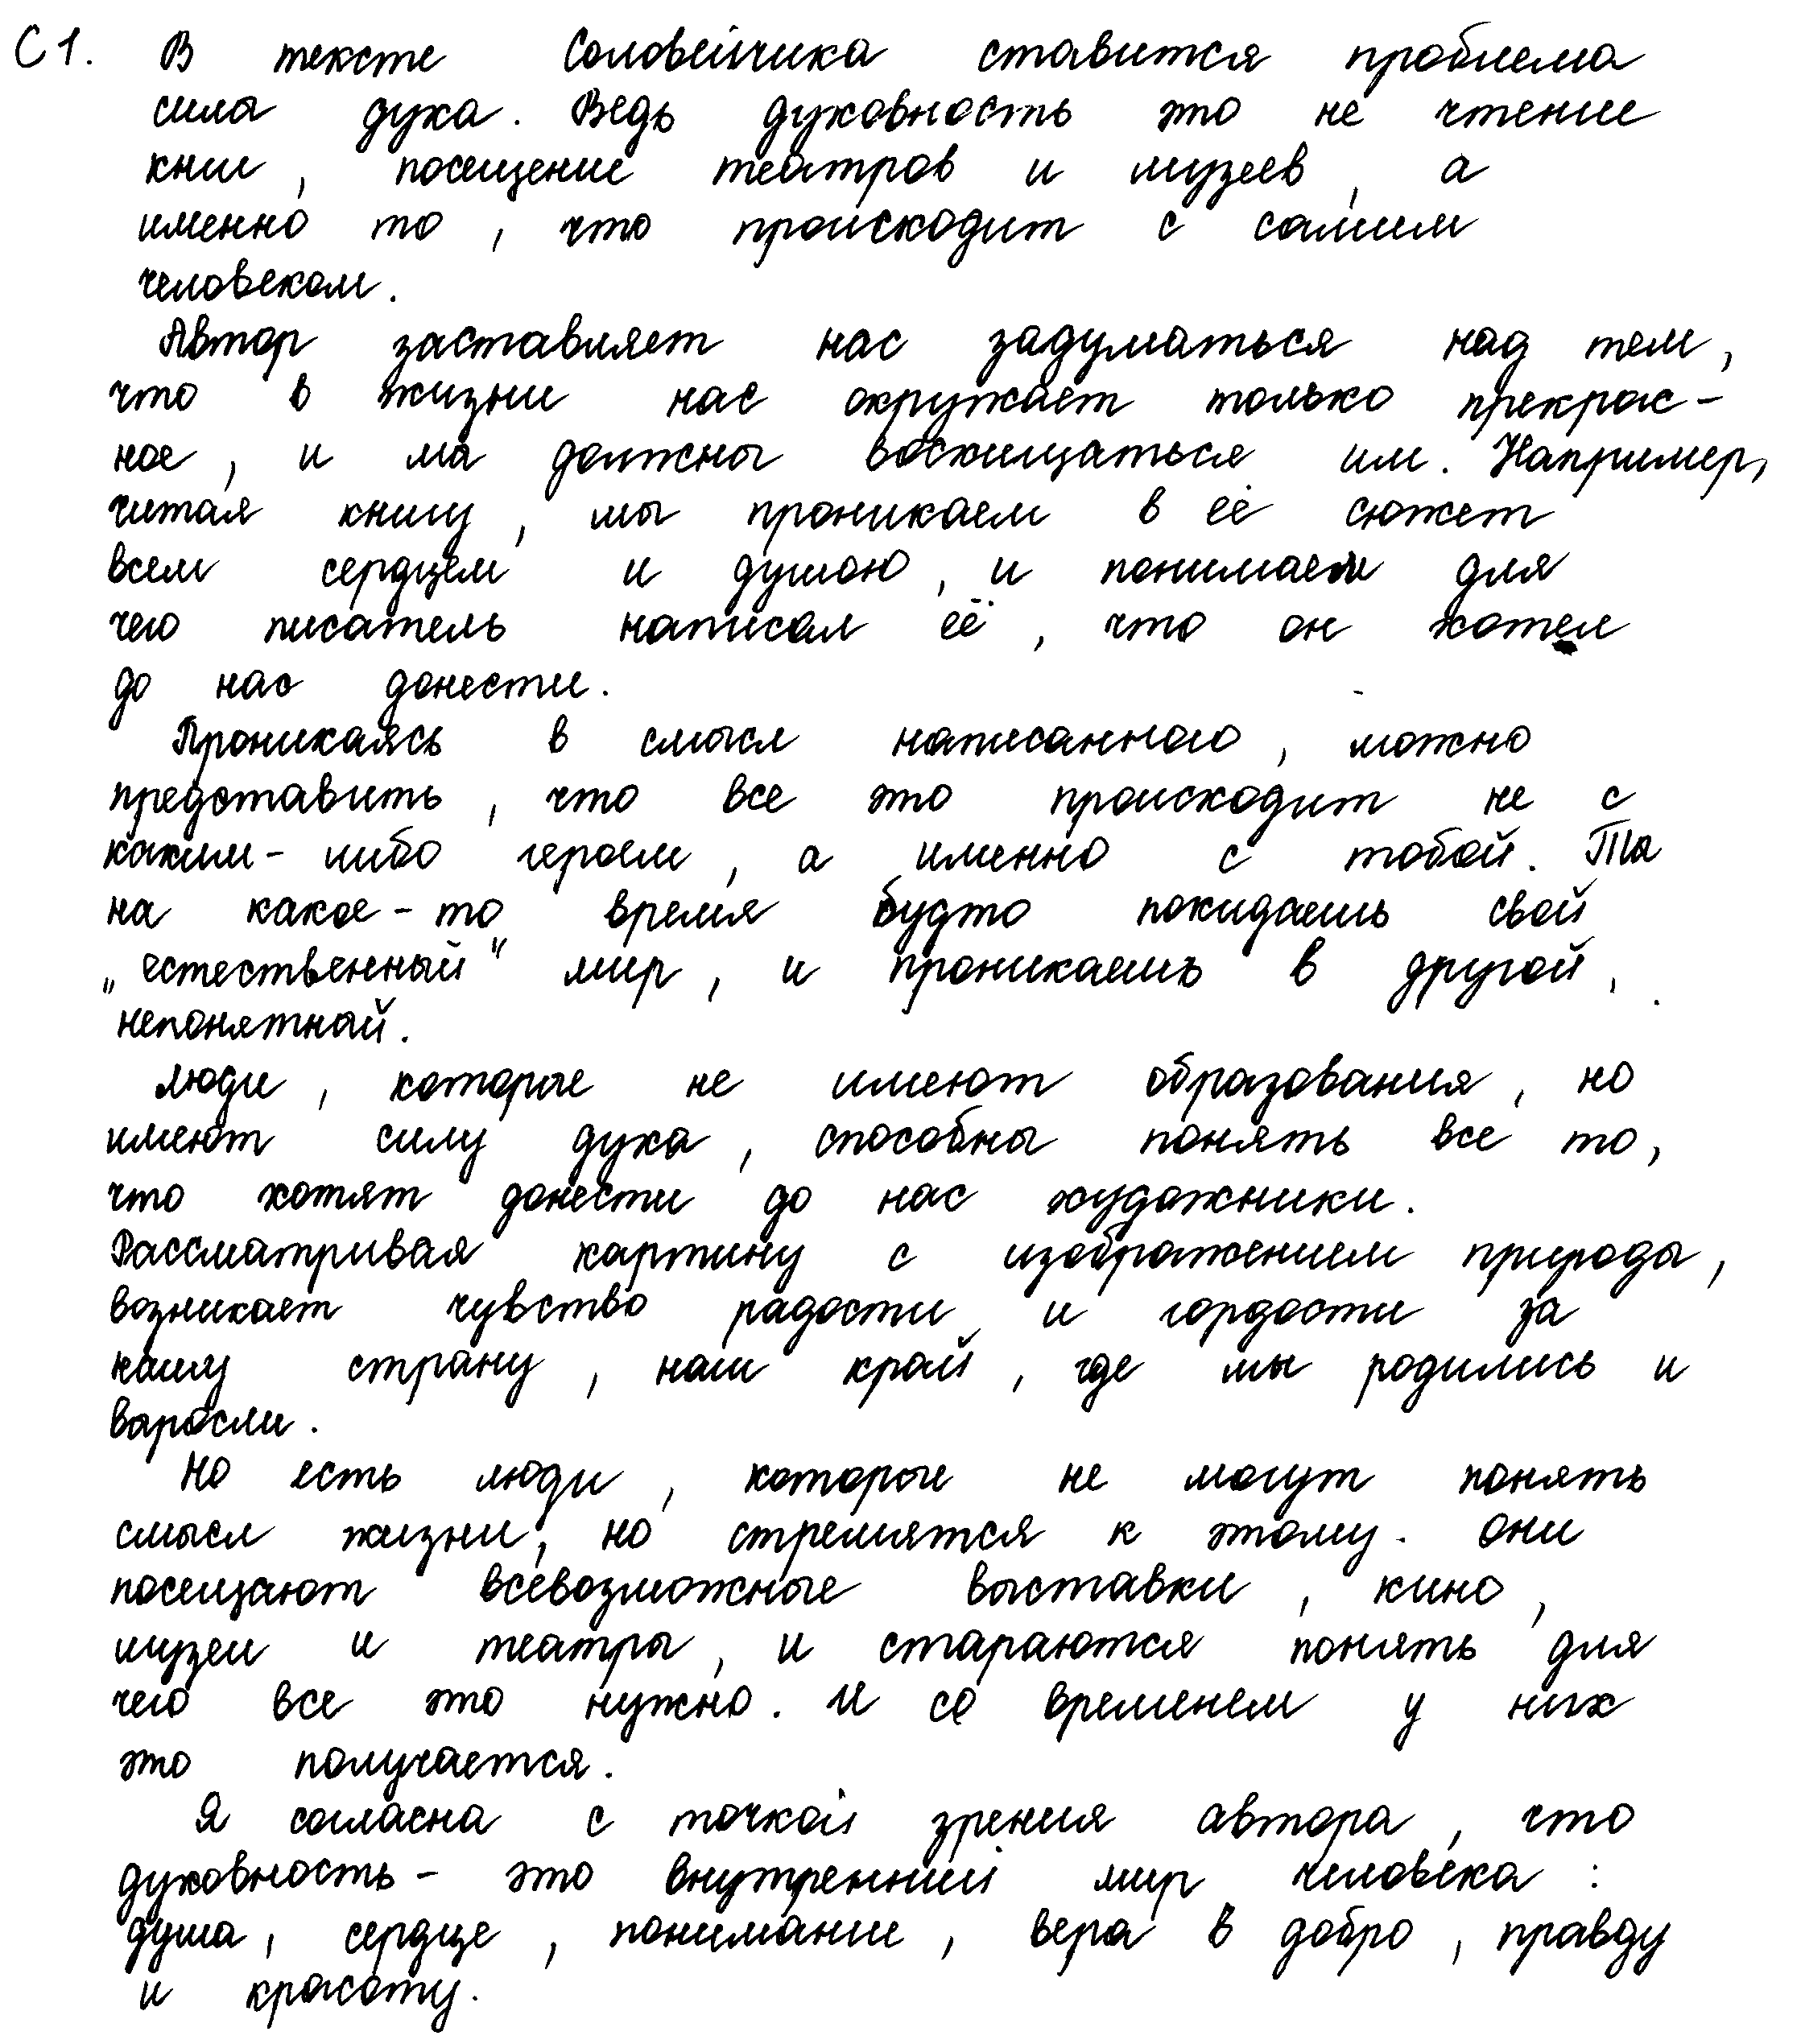 С1. В тексте Соловейчика ставится проблема
сила духа. Ведь духовность это не чтение
книг, посещение театров и музеев, а
именно то, что происходит с самим
человеком.
Автор заставляет нас задуматься над тем,
что в жизни нас окружает только прекрас-
ное, и мы должны восхищаться им. Например,
читая книгу, мы проникаем в её сюжет
всем сердцем и душою, и понимаем для
чего писатель написал её, что он хотел
до нас донести.
Проникаясь в смысл написанного, можно
представить, что все это происходит не с
каким-либо героем, а именно с тобой. Ты
на какое-то время будто покидаешь свой
„естественный" мир, и проникаешь в другой,
непонятный.
Люди, которые не имеют образования, но
имеют силу духа, способны понять все то,
что хотят донести до нас художники.
Рассматривая картину с изображением природы,
возникает чувство радости и гордости за
нашу страну, наш край, где мы родились и
выросли.
Но есть люди, которые не могут понять
смысл жизни, но стремятся к этому. Они
посещают всевозможные выставки, кино,
музеи и театры, и стараются понять для
чего все это нужно. И со временем у них
это получается.
Я согласна с точкой зрения автора, что
духовность - это внутренний мир человека:
душа, сердце, понимание, вера в добро, правду
и красоту.